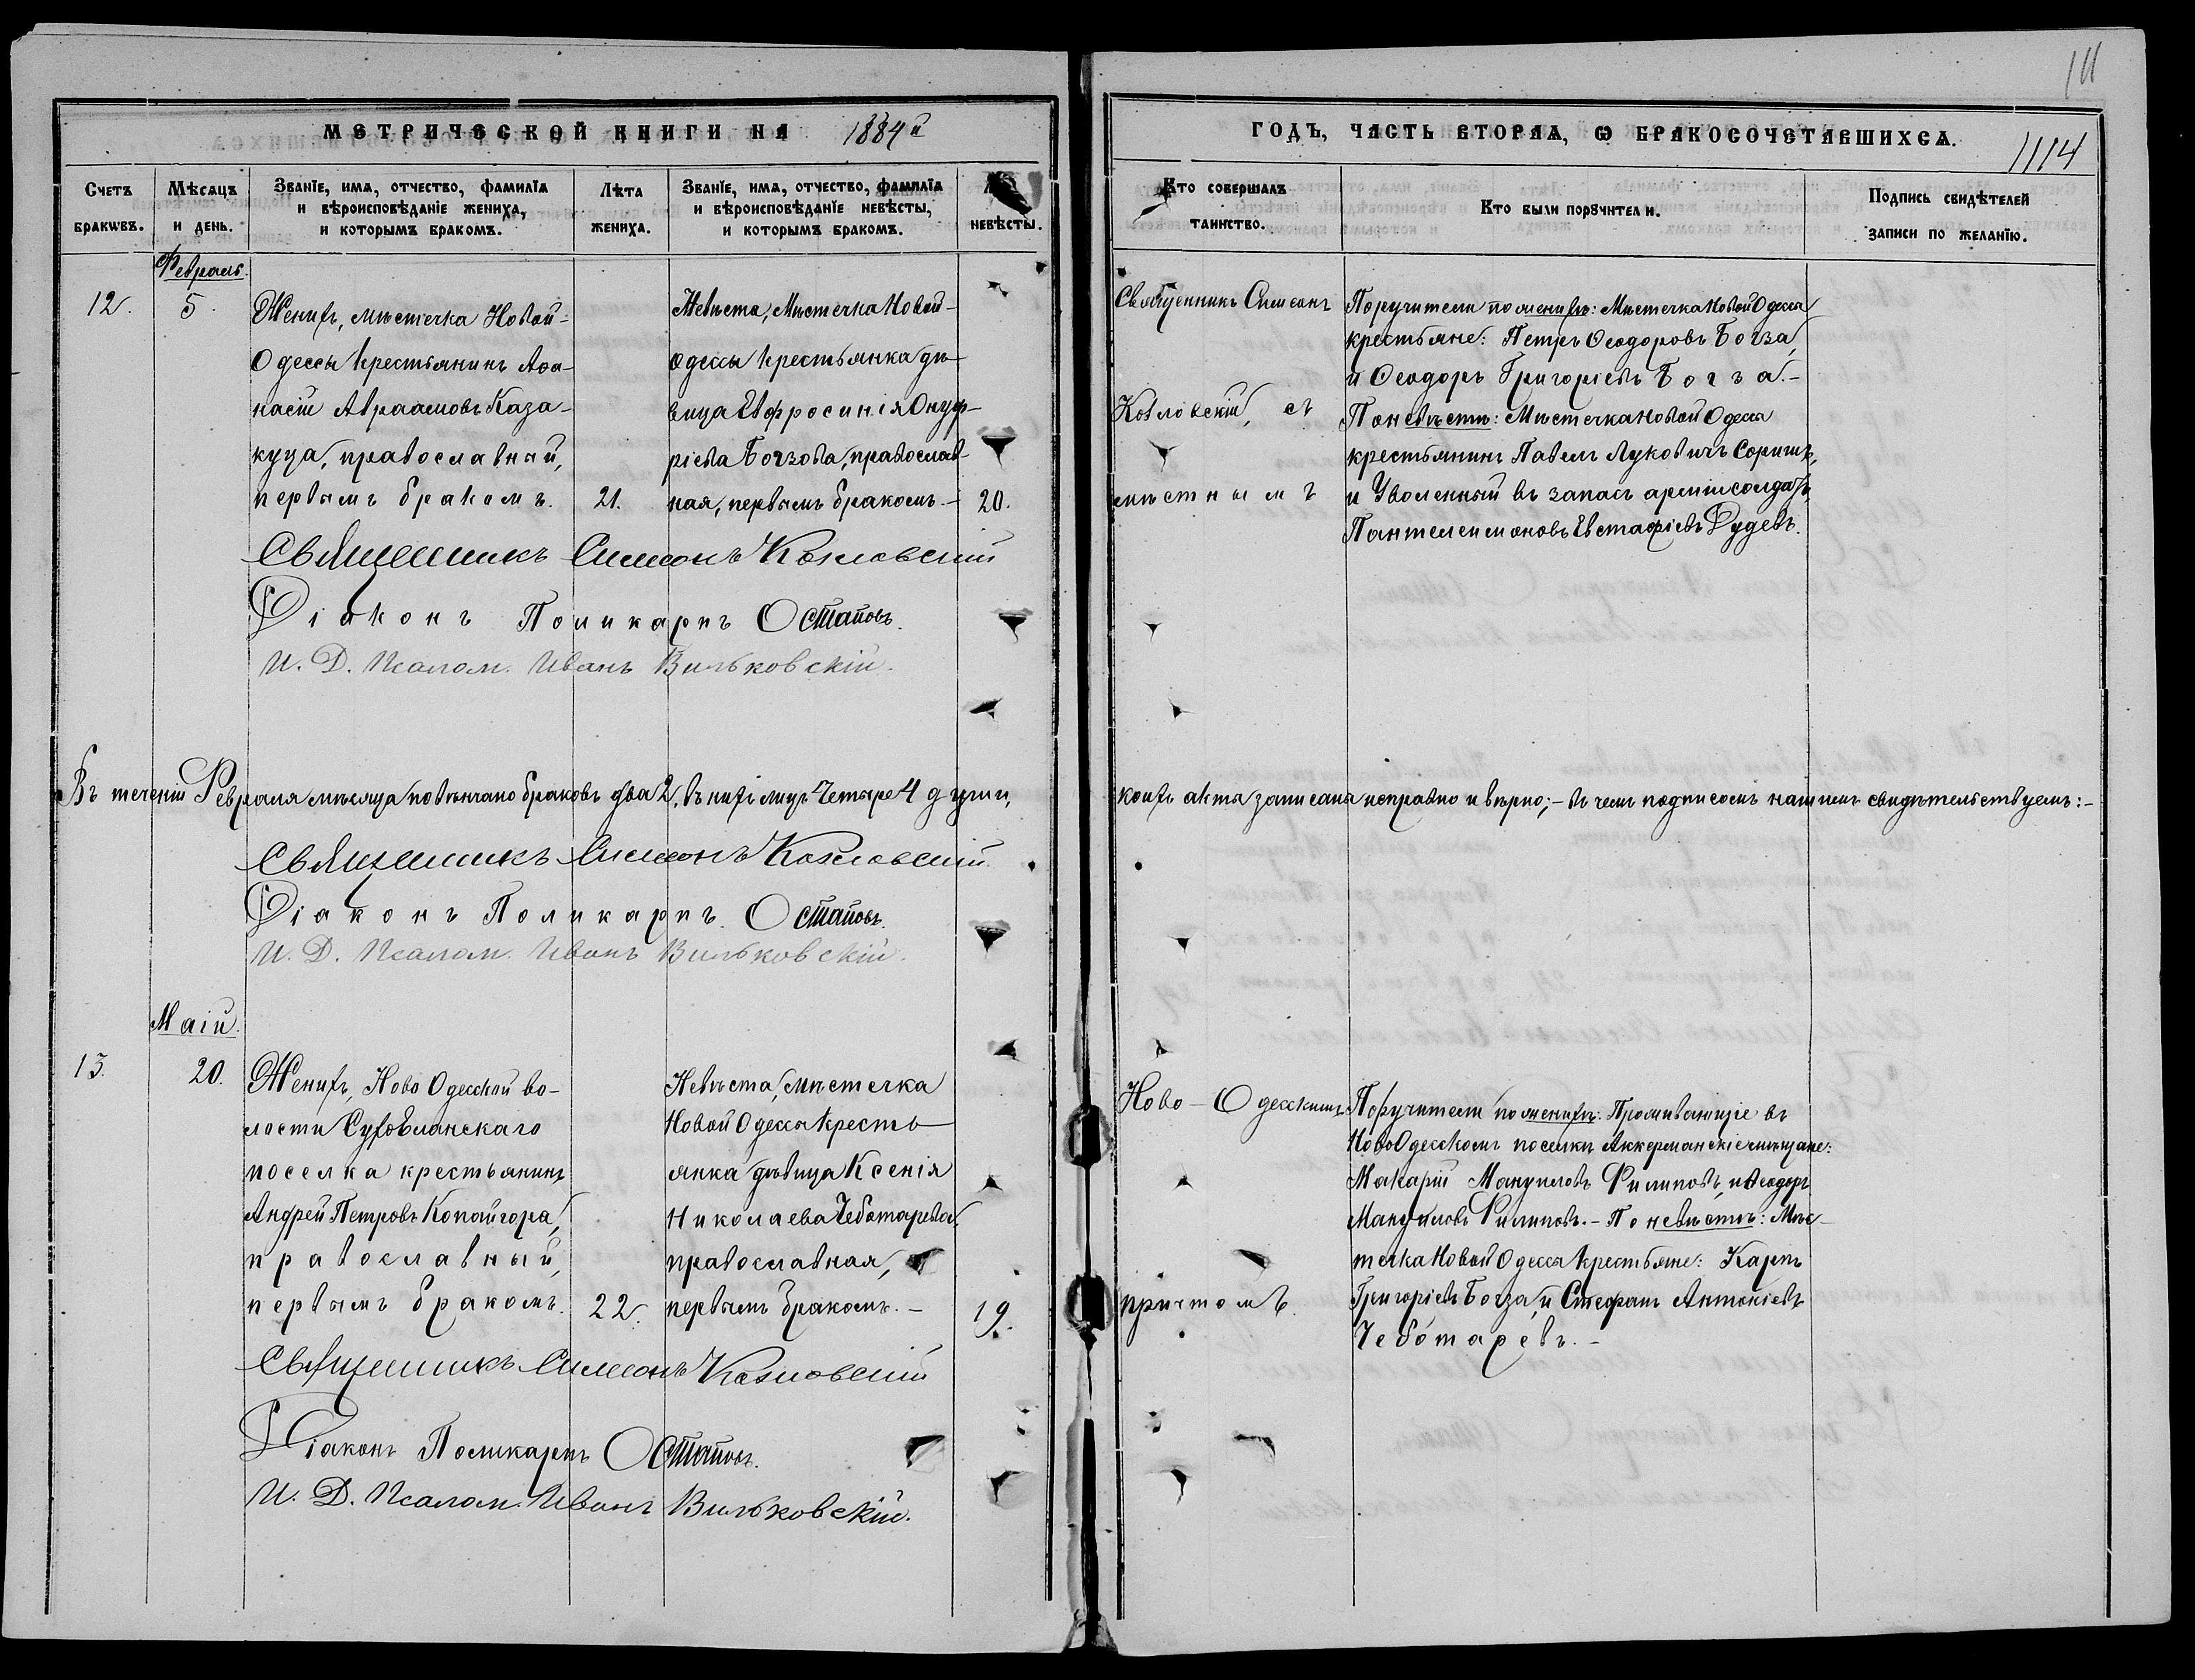 111
МЕТРИЧЕСКОЙ КНИГИ НА 1884й
ГОДЪ, ЧАСТЬ ВТОРАѦ, Ѡ БРАКОСОЧЕТАВШИХСѦ.
1114
Счетъ браковъ.
Мѣсяцъ и день.
Званїе, имѧ, отчество, фамилїѧ и вѣроисповѣданїе жениха, и которымъ бракомъ.
Лѣта жениха.
Званїе, имѧ, отчество, фамилїѧ и вѣроисповѣданїе невѣсты, и которымъ бракомъ.
невѣсты.
Кто совершалъ таинство.
Кто были порꙋчители.
Подпись свидѣтелей записи по желанїю.
Февраль.
12.
5.
Женихъ, мѣстечка Новой-
Одессы крестьянинъ Аѳа-
насій Авраамовъ Каза-
куца, православный,
первымъ бракомъ.
21.
Невѣста, Мѣстечка Новой-
Одессы крестьянка дѣ-
вица Евфросинія Онуф-
ріева Богзова, православ-
ная, первымъ бракомъ.-
20.
Священникъ Симеонъ
Козловскій, съ
мѣстнымъ
Поручители по женихѣ: Мѣстечка Новой Одессы
крестьяне: Петръ Ѳеодоровъ Богза,
и Ѳеодоръ Григоріевъ Богза.-
По невѣстѣ: Мѣстечка Новой Одессы
крестьянинъ Павелъ Луковичъ Соричъ,
и Уволенный въ запасъ арміи солдатъ
Пантелеимоновъ Евстафіевъ Дудевъ.
Священникъ Симеонъ Козловскій
Діаконъ Поликарпъ Остаповъ.
И. Д. Псалом. Иванъ Вильковскій.
Въ теченіи Февраля мѣсяца повѣнчано браковъ два 2, въ нихъ лицъ Четыре 4 души, коихъ акты записаны исправно и вѣрно;- въ чемъ подписомъ нашимъ свидѣтельствуемъ:-
Священникъ Симеонъ Козловскій.
Діаконъ Поликарпъ Остаповъ.
И. Д. Псалом. Иванъ Вильковскій.
Маій.
13.
20.
Женихъ, Ново Одесской во-
лости Сухоеланскаго
поселка крестьянинъ
Андрей Петровъ Копайгора,
православный,
первымъ бракомъ.
22.
Невѣста, мѣстечка
Новой Одессы кресть-
янка дѣвица Ксенія
Николаева Чеботарева,
православная,
первымъ бракомъ.-
19.
Ново-Одесскимъ
причтомъ.
Поручители по женихѣ: Проживающіе въ
НовоОдесскомъ поселкѣ Аккерманскіе мѣщане:
Макарій Мануиловъ Филиповъ, и Ѳеодоръ
Мануиловъ Филиповъ.- По невѣстѣ: Мѣс-
течка Новой Одессы крестьяне: Карпъ
Григоріевъ Богза, и Стефанъ Антоніевъ
Чеботаревъ.-
Священникъ Симеонъ Козловскій
Діаконъ Поликарпъ Остаповъ.
И. Д. Псалом. Иванъ Вильковскій.